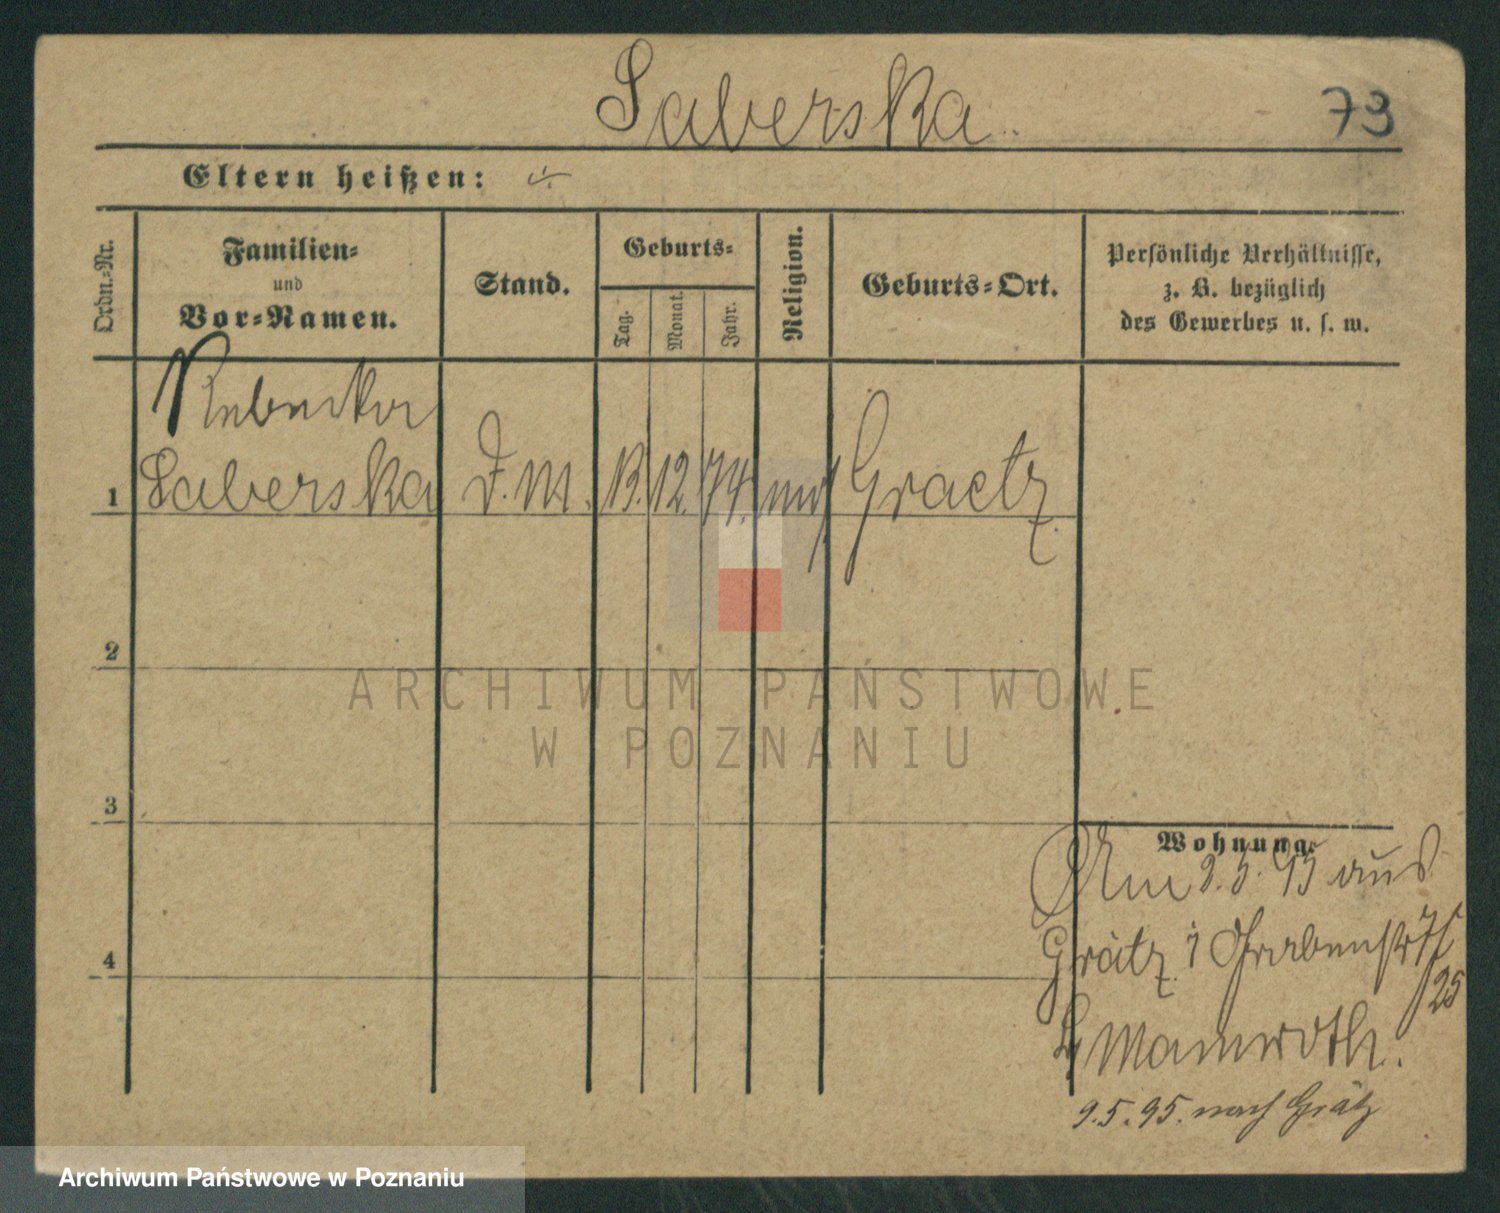 Saberska
73
Eltern heißen: ./.
Ordn.-Nr.
Familien-
und
Vor-Namen.
Stand.
Geburts-
Tag.
Monat.
Jahr.
Religion.
Geburts-Ort.
Persönliche Verhältnisse,
z. B. bezüglich
des Gewerbes u. s. w.
Saberska D.M. 13. 12. 74. Graetz
1
2
3
4
ARCHIWUM PAŃSTWOWE
W POZNANIU
Wohnung.
Am 2.5.95 aus
Grätz
25
Mamroth.
9.5.95. nach Grätz
Archiwum Państwowe w Poznaniu